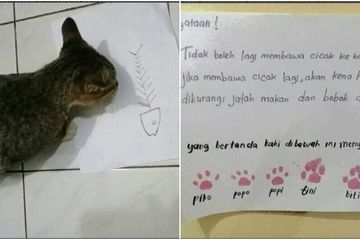 yataan!
Tidak boleh lagi membawa cicak ke
jika membawa cicak lagi, akan kena
dikurangi jatah makan dan bobok
yang bertanda kaki dibawah ini
piko popo pipi tini